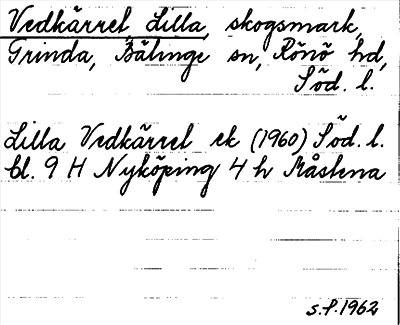 Vedkärret, Lilla, skogsmark,
Grinda, Bälinge sn, Rönö hd,
Söd. l.
Lilla Vedkärret ek (1960) Söd. l.
bl. 9 H Nyköping 4 h Råstena
s.P.1962